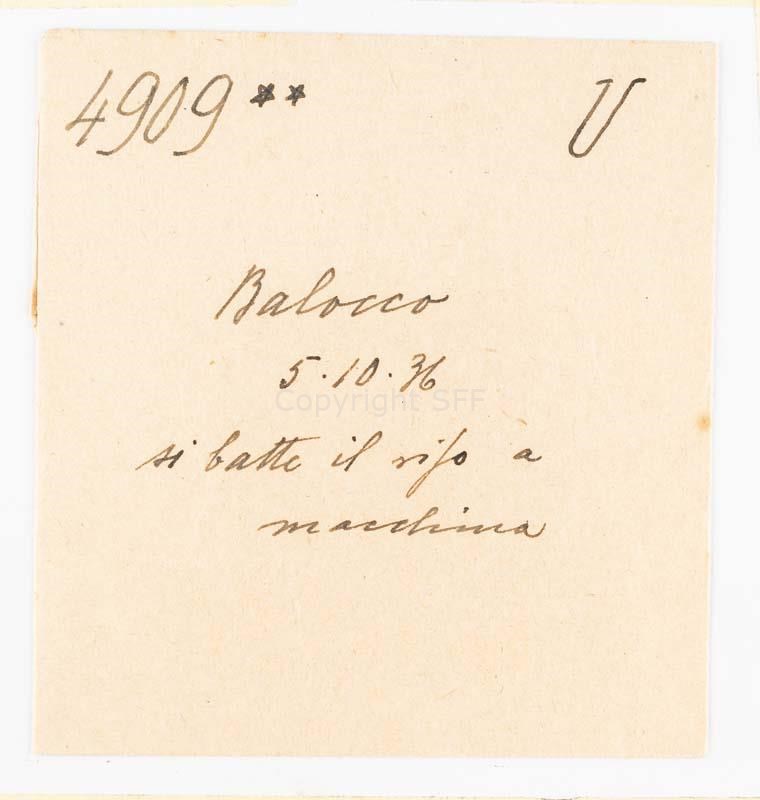 4909** U
Balocco
5.10.36
Copyright SFF
si batte il riso a
macchina